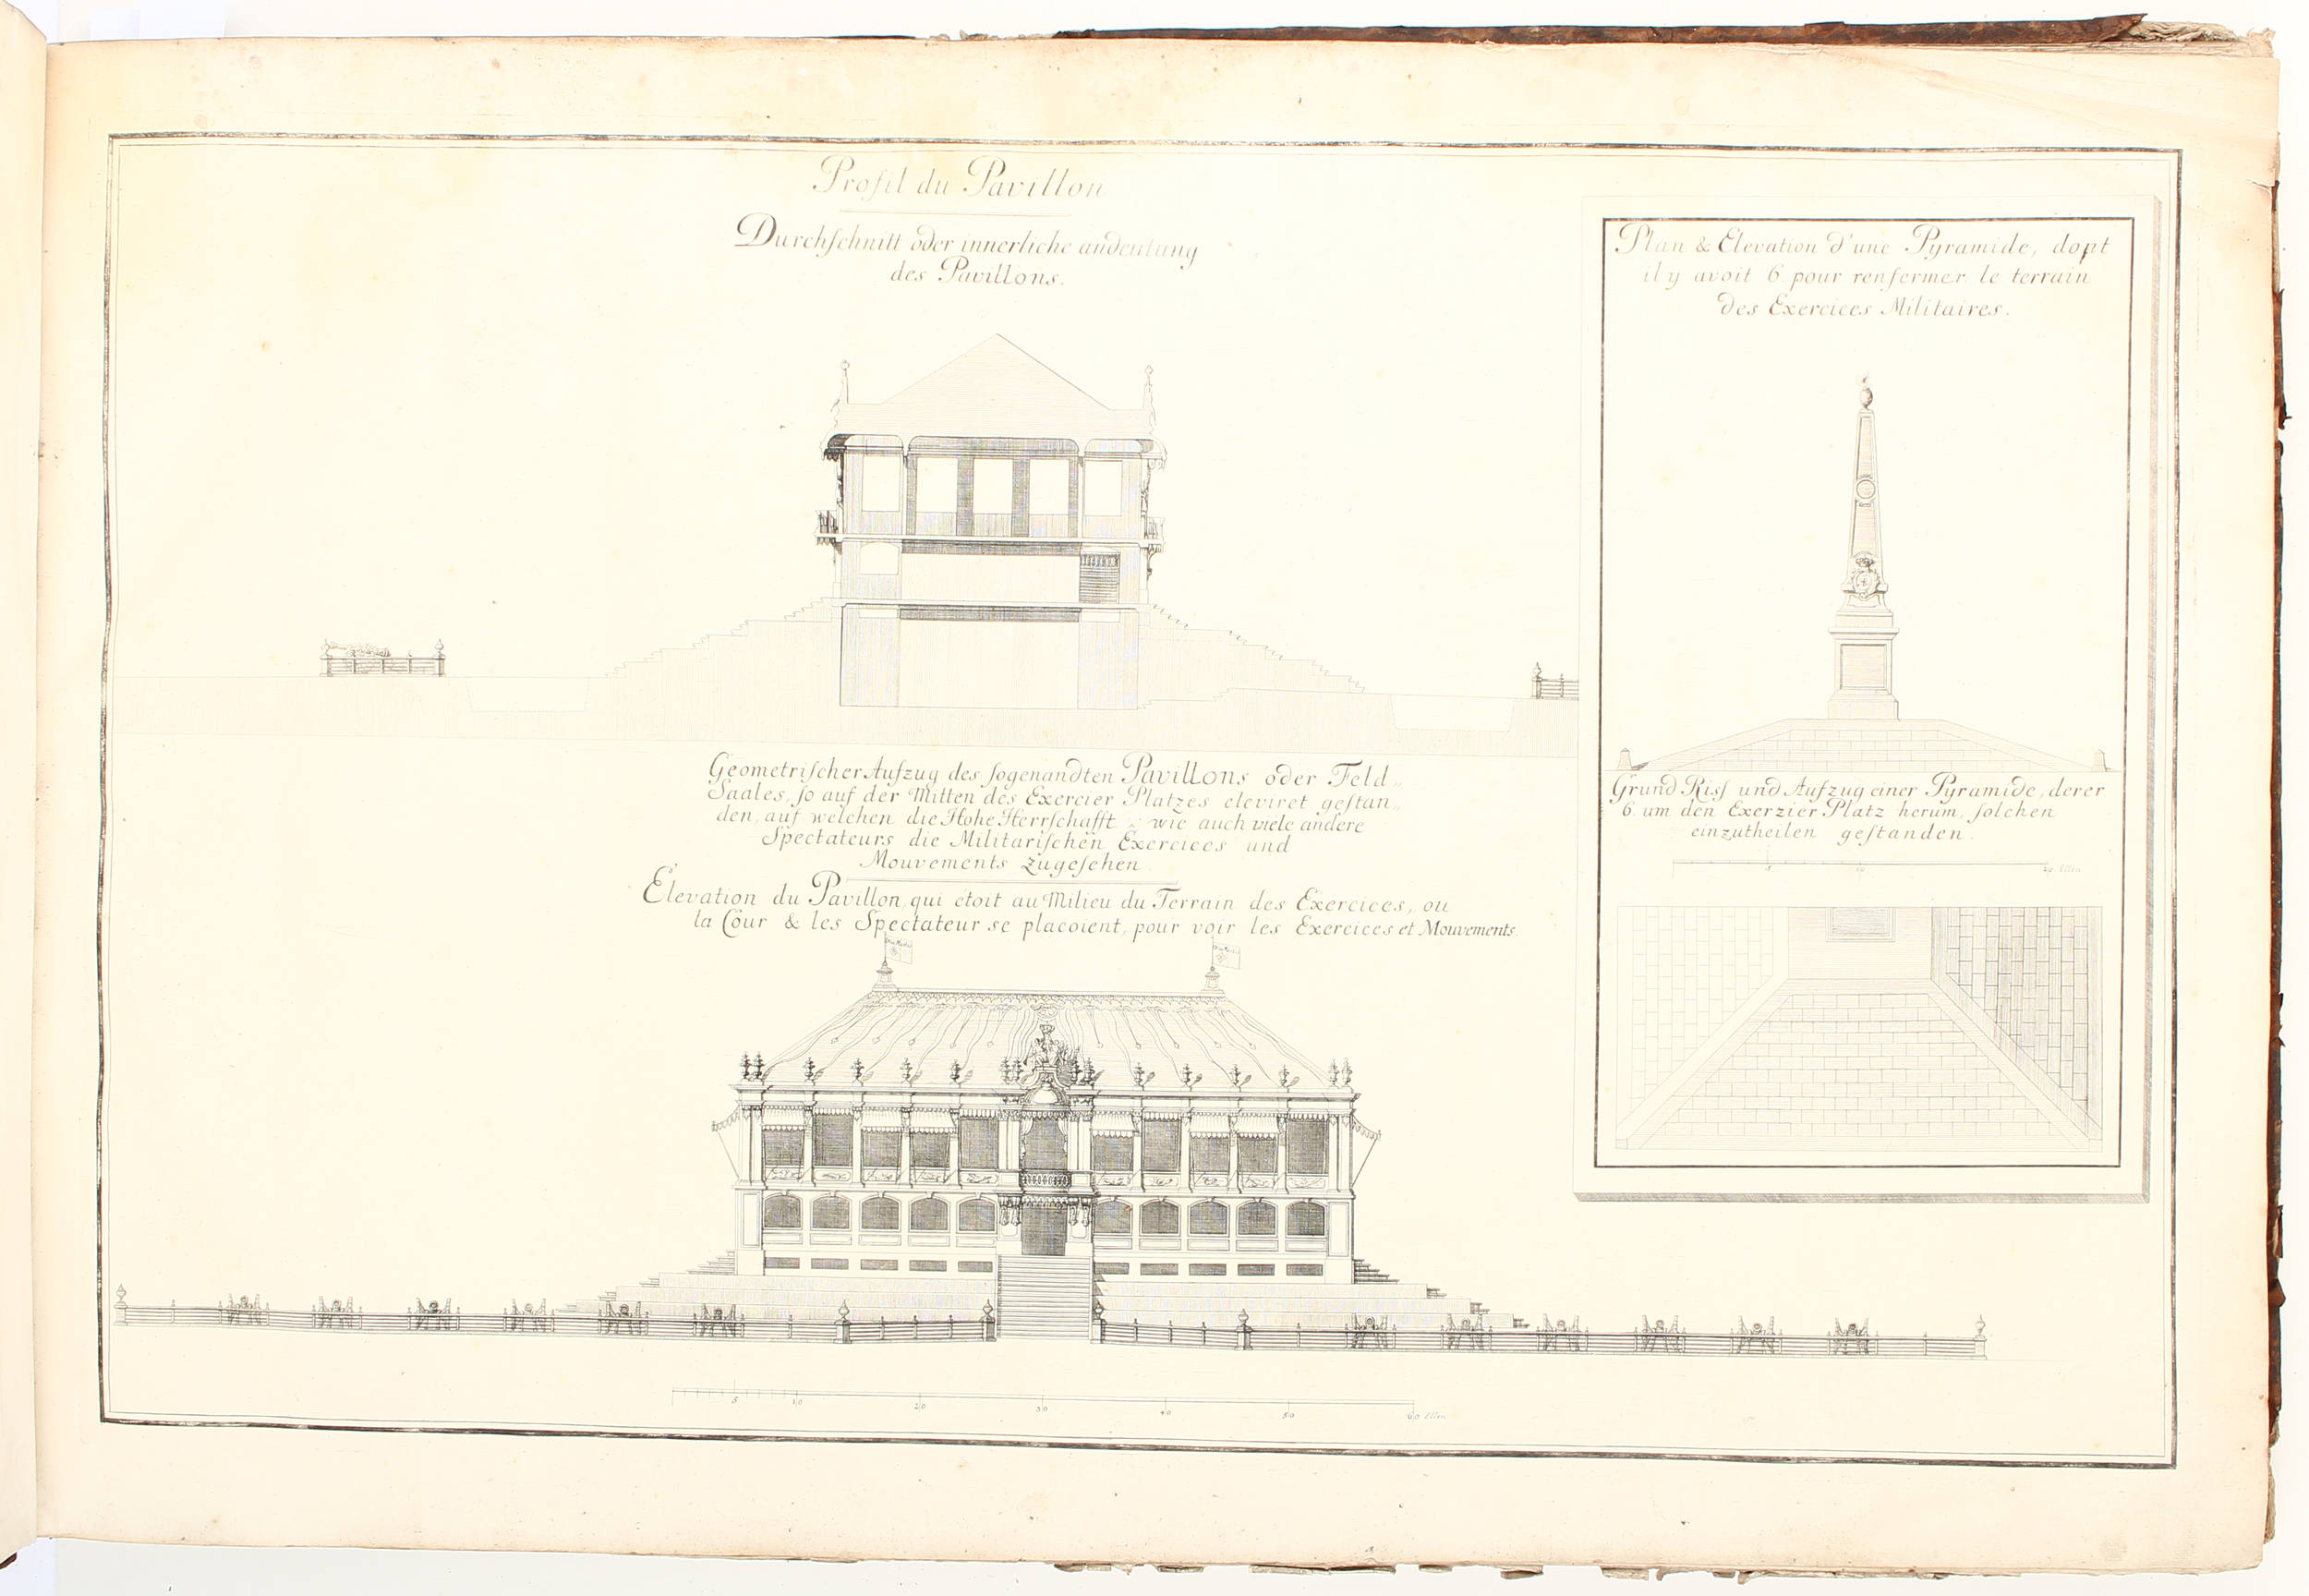 Profil du Pavillon
Durchſchnitt oder innerliche andeutung
des Pavillons.
Geometriſcher Aufzug des ſogenandten Pavillons oder Feld„
Saales, ſo auf der Mitten des Exercier Platzes eleviret geſtan„
den, auf welchen die Hohe Herrſchafft, wie auch viele andere
Spectateurs die Militariſchen Exercices und
Mouvements zugeſehen.
Elevation du Pavillon, qui étoit au Milieu du Terrain des Exercices, ou
la Cour & les Spectateur se placoient, pour voir les Exercices et Mouvements
5 10 20 30 40 50 60 Ellen
Plan & Elevation d'une Pyramide, dont
il y avoit 6 pour renfermer le terrain
des Exercices Militaires.
Grund Riſſ und Aufzug einer Pyramide, derer
6. um den Exerzier Platz herum, ſolchen
einzutheilen geſtanden.
5 10 20 Ellen